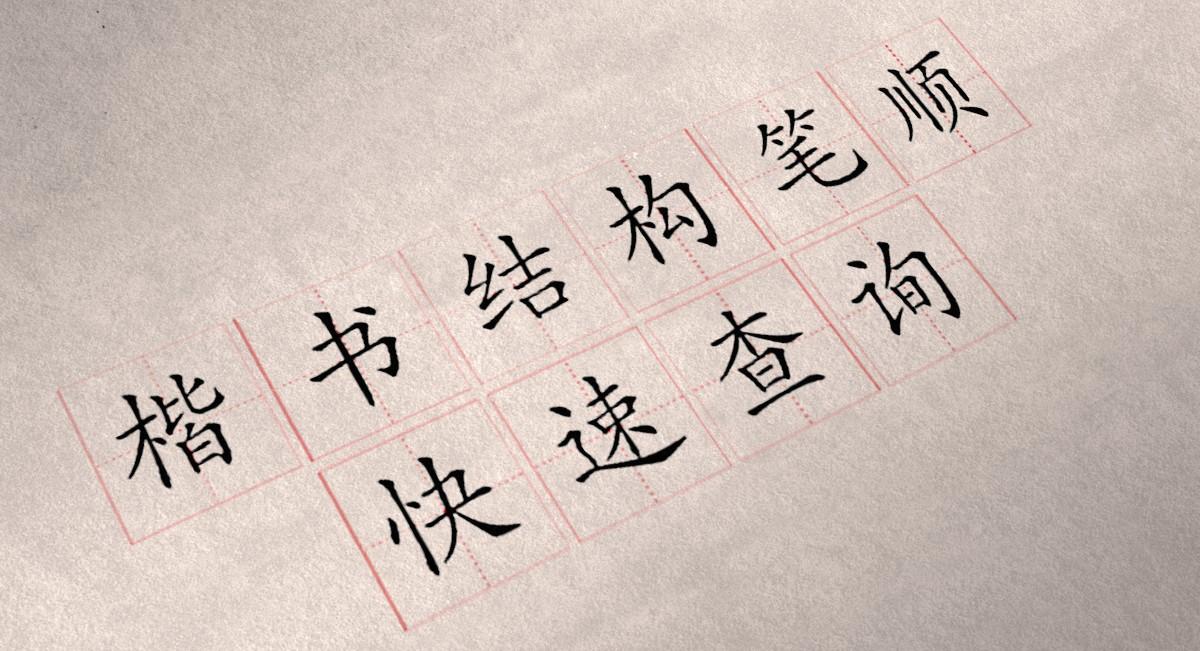 楷书结构笔顺
快速查询